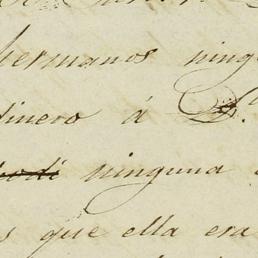 hermanos ning
dinero á D.
ninguna
s que ella era